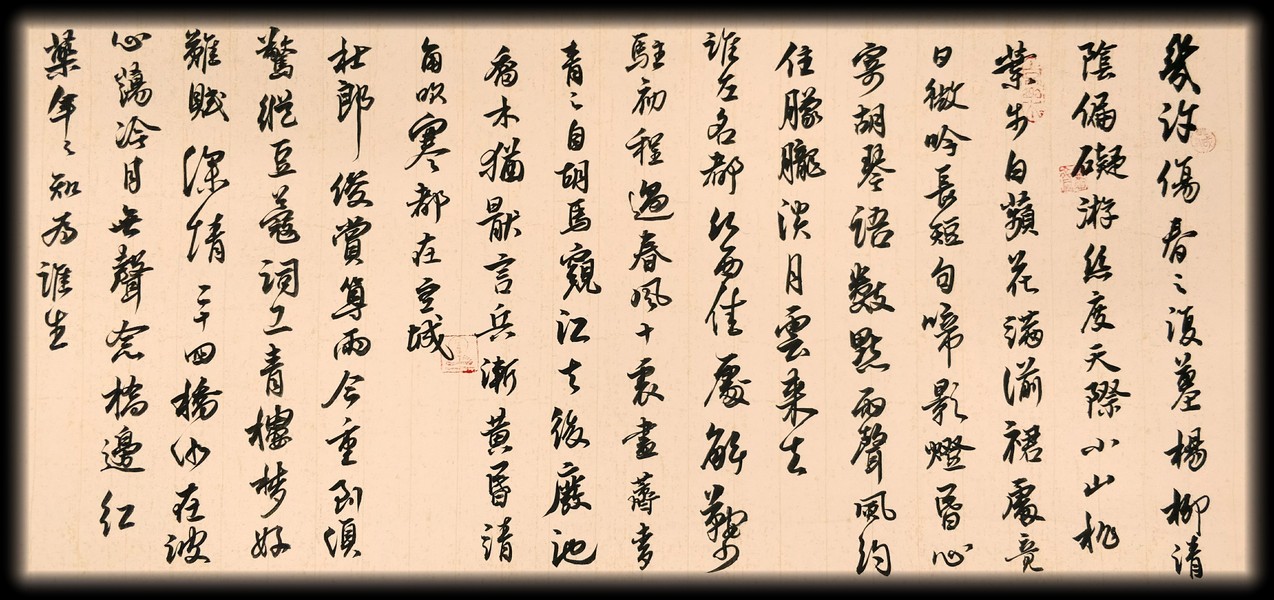 幾許傷春〻復暮楊柳清
陰偏礙游絲度天際小山桃
葉步白蘋花滿湔裙處竟
日微吟長短句啼影燈昏心
寄胡琴語數點雨聲風約
住朦朧淡月雲來去
淮左名都竹西佳處解鞍少
駐初程過春風十裏盡薺麥
青〻自胡馬窺江去後廢池
喬木猶厭言兵漸黃昏清
角吹寒都在空城
杜郎俊賞算而今重到須
驚縱豆蔻詞工青樓梦好
難賦深情二十四橋仍在波
心蕩冷月無聲念橋邊紅
藥年〻知為誰生